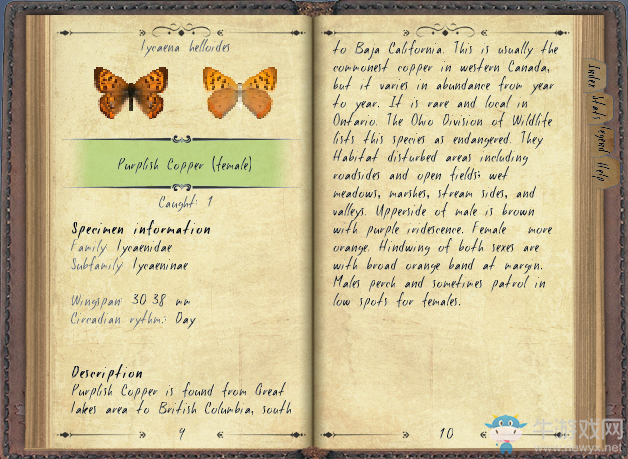 Lycaena helloides
Purplish Copper (female)
Caught: 1
Specimen information
Family: Lycaenidae
Subfamily: Lycaeninae
Wingspan: 30 38 mm
Circadian rythm.: Day
Description
Purplish Copper is found from Great
Lakes area to British Columbia, south
9
to Baja California. This is usually the
commonest copper in western Canada,
but it varies in abundance from year
to year. It is rare and local in
Ontario. The Ohio Division of Wildlife
lists this species as endangered. They
Habitat disturbed areas including
roadsides and open fields; wet
meadows, marshes, stream sides, and
valleys. Upperside of male is brown
with purple iridescence. Female more
orange. Hindwing of both sexes are
with broad orange band at margin.
Males perch and sometimes patrol in
low spots for females.
10
Index
Stats
Legend
Help
牛游戏网
www.newyx.net